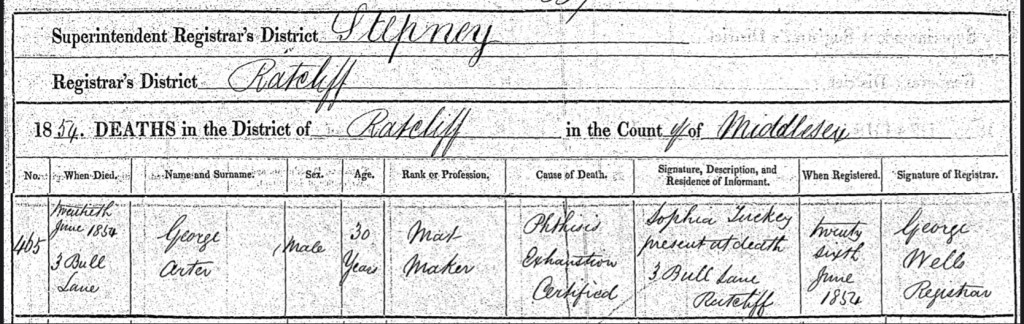 Superintendent Registrar's District Stepney
Registrar's District Ratcliff
1854. DEATHS in the District of Ratcliff in the County of Middlesex
No. When Died. Name and Surname. Sex. Age. Rank or Profession. Cause of Death. Signature, Description, and Residence of Informant. When Registered. Signature of Registrar.
465
Twentieth
June 1854
3 Bull
Lane
George
Arter
Male
30
Years
Mat
Maker
Phthisis
Exhaustion
Certified
Sophia Tuckey
present at death
3 Bull Lane
Ratcliff
Twenty
sixth
June
1854
George
Wells
Registrar